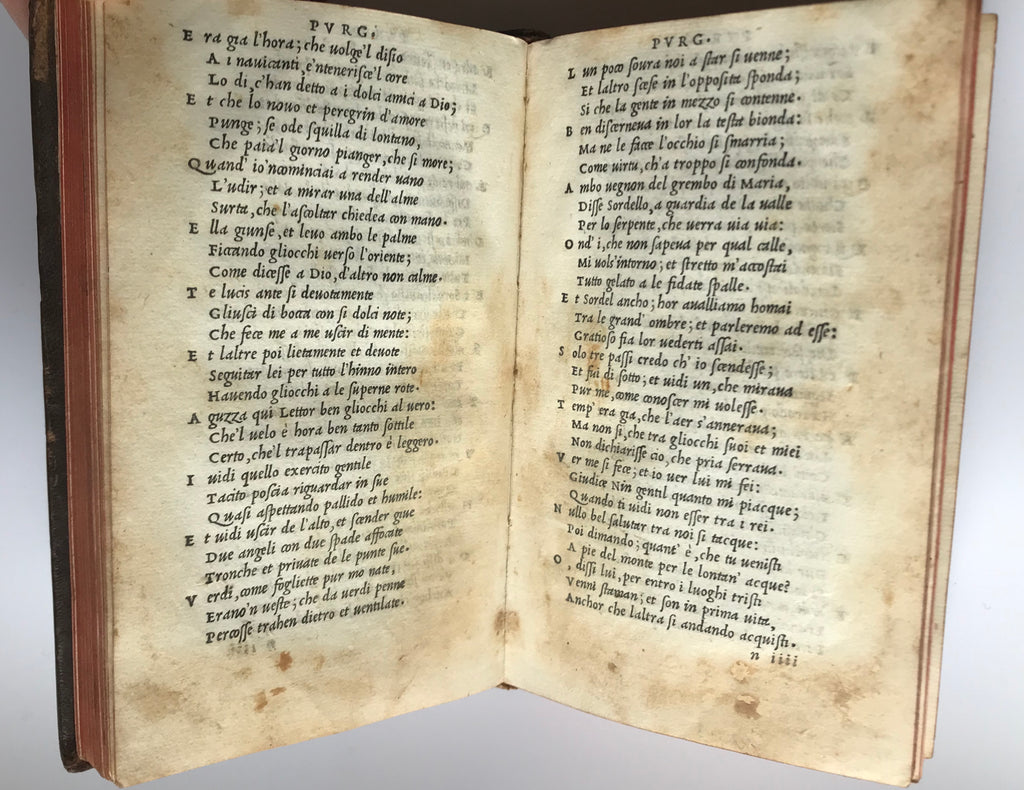 PVRG.
E ra gia l'hora; che uolge'l disio
A i nauicanti, e'ntenerisce'l core
Lo di, c'han detto a i dolci amici a Dio;
E t che lo nouo et peregrin d'amore
Punge; se ode squilla di lontano,
Che paia'l giorno pianger, che si more;
Quand' io'ncominciai a render uano
L'udir; et a mirar una dell'alme
Surta, che l'ascoltar chiedea con mano.
E lla giunse, et leuo ambo le palme
Ficcando gliocchi uerso l'oriente;
Come dicesse a Dio, d'altro non calme.
T e lucis ante si deuotamente
Gliusci di bocca con si dolci note;
Che fece me a me uscir di mente:
E t laltre poi lietamente et deuote
Seguitar lei per tutto l'hinno intero
Hauendo gliocchi a le superne rote.
A guzza qui Lettor ben gliocchi al uero:
Che'l uelo è hora ben tanto sottile
Certo, che'l trapassar dentro è leggero.
I uidi quello exercito gentile
Tacito poscia riguardar in sue
Quasi aspettando pallido et humile:
E t uidi uscir de l'alto, et scender giue
Due angeli con due spade affocate
Tronche et priuate de le punte sue.
V erdi, come fogliette pur mo nate,
Erano'n ueste; che da uerdi penne
Percosse trahen dietro et uentilate.
PVRG.
L un poco soura noi a star si uenne;
Et laltro scese in l'opposita sponda;
Si che la gente in mezzo si contenne.
B en discerneua in lor la testa bionda:
Ma ne le facce l'occhio si smarria;
Come uirtu, ch'a troppo si confonda.
A mbo uegnon del grembo di Maria,
Disse Sordello, a guardia de la ualle
Per lo serpente, che uerra uia uia:
O nd' i, che non sapeua per qual calle,
Mi uols'intorno; et stretto m'accostai
Tutto gelato a le fidate spalle.
E t Sordel ancho; hor aualliamo homai
Tra le grand' ombre; et parleremo ad esse:
Gratioso fia lor uederti assai.
S olo tre passi credo ch' io scendesse;
Et fui di sotto; et uidi un, che miraua
Pur me, come conoscer mi uolesse.
T emp' era gia, che l'aer s'anneraua;
Ma non si, che tra gliocchi suoi et miei
Non dichiarisse cio, che pria serraua.
V er me si fece; et io uer lui mi fei:
Giudice Nin gentil quanto mi piacque;
Quando ti uidi non esser tra i rei.
N ullo bel salutar tra noi si tacque:
Poi dimando; quant' è, che tu uenisti
A pie del monte per le lontan' acque?
O , dissi lui, per entro i luoghi tristi
Venni staman; et son in prima uita,
Anchor che laltra si andando acquisti.
n iiii